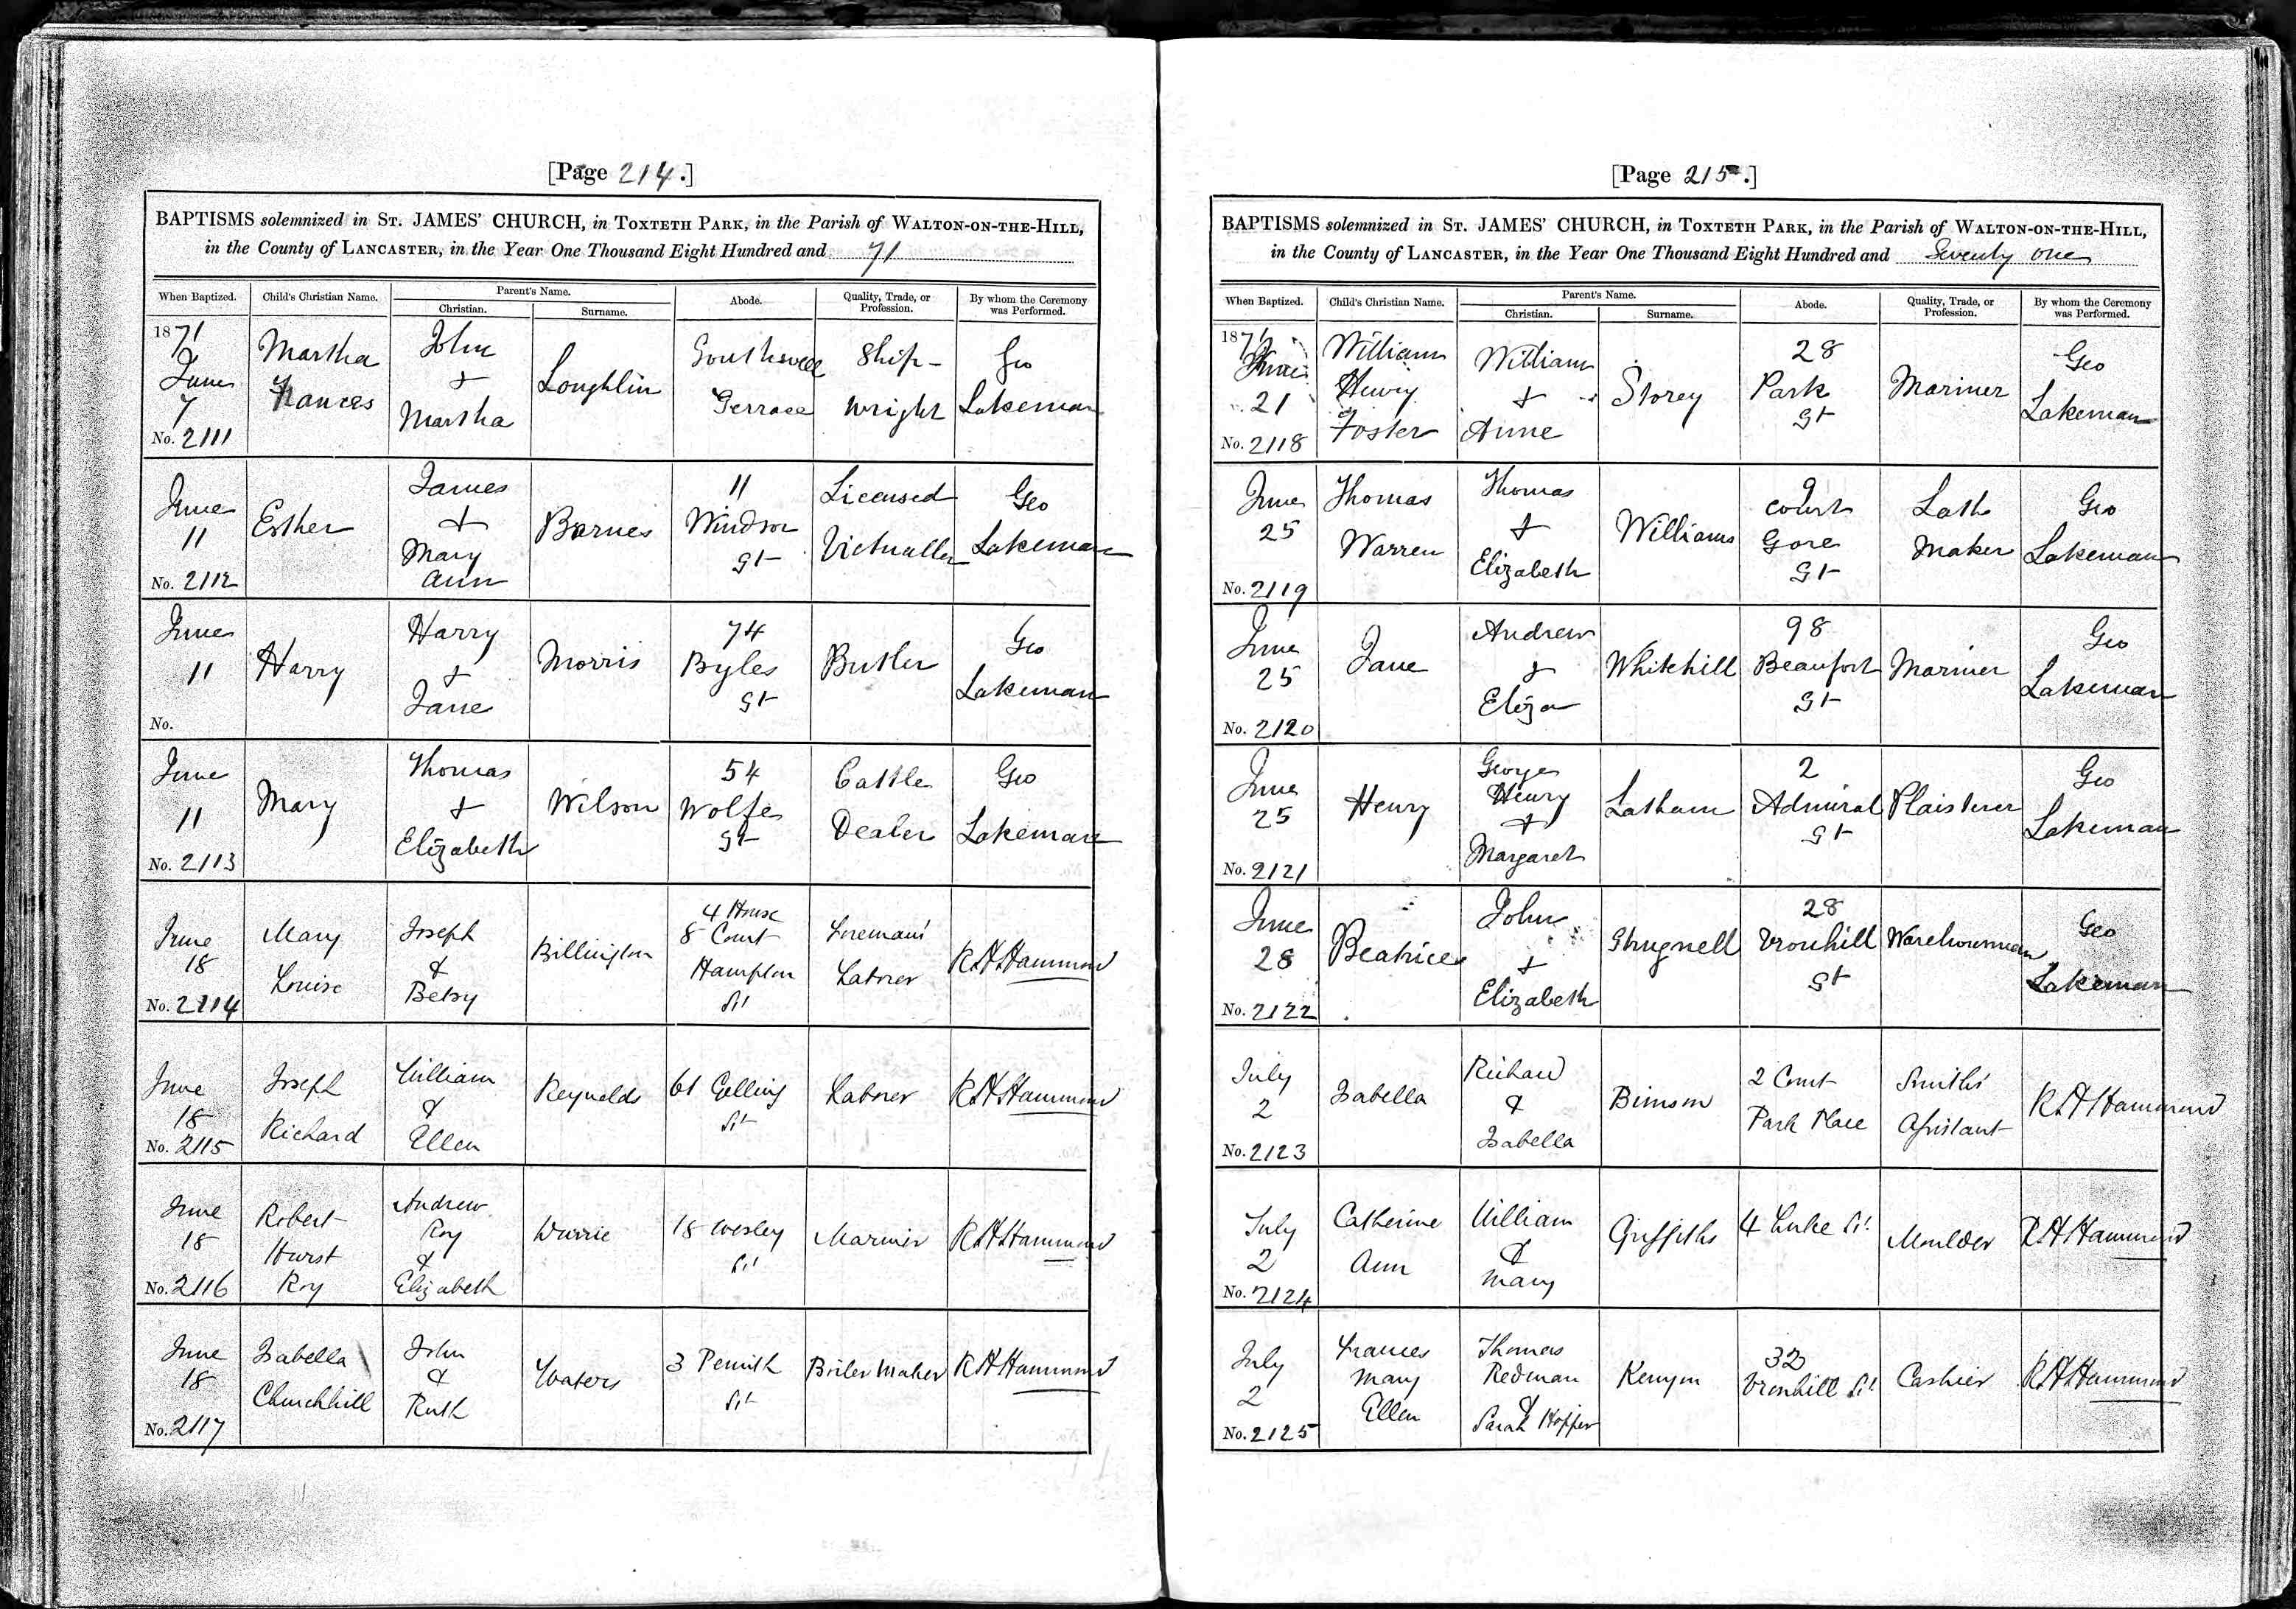 [Page 214.]
BAPTISMS solemnized in ST. JAMES' CHURCH, in TOXTETH PARK, in the Parish of WALTON-ON-THE-HILL,
in the County of LANCASTER, in the Year One Thousand Eight Hundred and 71
When Baptized. Child's Christian Name. Parent's Name. Christian. Surname. Abode. Quality, Trade, or Profession. By whom the Ceremony was Performed.
1871 June 7 No. 2111 Martha Frances John & Martha Loughlin Southwell Terrace Ship-wright Geo Lakeman
June 11 No. 2112 Esther James & Mary Ann Barnes 11 Windsor St Licensed Victualler Geo Lakeman
June 11 No. Harry Harry & Jane Morris 74 Byles St Butler Geo Lakeman
June 11 No. 2113 Mary Thomas & Elizabeth Wilson 54 Wolfe St Cattle Dealer Geo Lakeman
June 18 No. 2114 Mary Louise Joseph & Betsy Billington 4 House 8 Court Hampton St Foreman's Labrer R.H.Hammond
June 18 No. 2115 Joseph Richard William & Ellen Reynolds 61 Gelling St Labrer R.H.Hammond
June 18 No. 2116 Robert Hurst Roy Andrew Roy & Elizabeth 18 Wesley St Mariner R.H.Hammond
June 18 No. 2117 Isabella Churchhill John & Ruth Waters 3 Penrith St Boiler Maker R H Hammond
[Page 215.]
BAPTISMS solemnized in ST. JAMES' CHURCH, in TOXTETH PARK, in the Parish of WALTON-ON-THE-HILL,
in the County of LANCASTER, in the Year One Thousand Eight Hundred and Seventy one
When Baptized. Child's Christian Name. Parent's Name. Christian. Surname. Abode. Quality, Trade, or Profession. By whom the Ceremony was Performed.
1871 June 21 No. 2118 William Henry Foster William & Anne Storey 28 Park St Mariner Geo Lakeman
June 25 No. 2119 Thomas Warren Thomas & Elizabeth Williams 9 Court Gore St Lath Maker Geo Lakeman
June 25 No. 2120 Jane Andrew & Eliza Whitehill 98 Beaufort St Mariner Geo Lakeman
June 25 No. 2121 Henry George Henry & Margaret Latham 2 Admiral St Plaisterer Geo Lakeman
June 28 No. 2122 Beatrice John & Elizabeth Strugnell 28 Vronhill St Warehouseman Geo Lakeman
July 2 No. 2123 Isabella Richard & Isabella Bimson 2 Court Park Place Smith's Assistant R.H Hammond
July 2 No. 2124 Catherine Ann William & Mary Griffiths 4 Luke St. Moulder R H Hammond
July 2 No. 2125 Frances Mary Ellen Thomas Redman & Sarah Hopper Kenyon 32 Vronhill St Cashier R.H.Hammond